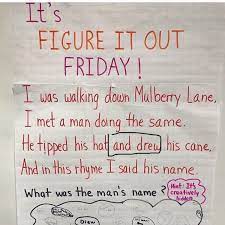 It's
FIGURE IT OUT
FRIDAY!
I was walking down Mulberry Lane,
I met a man doing the same.
He tipped his hat and drew his cane,
And in this rhyme I said his name.
What was the man's name?
Hint: It's
creatively
hidden
Drew